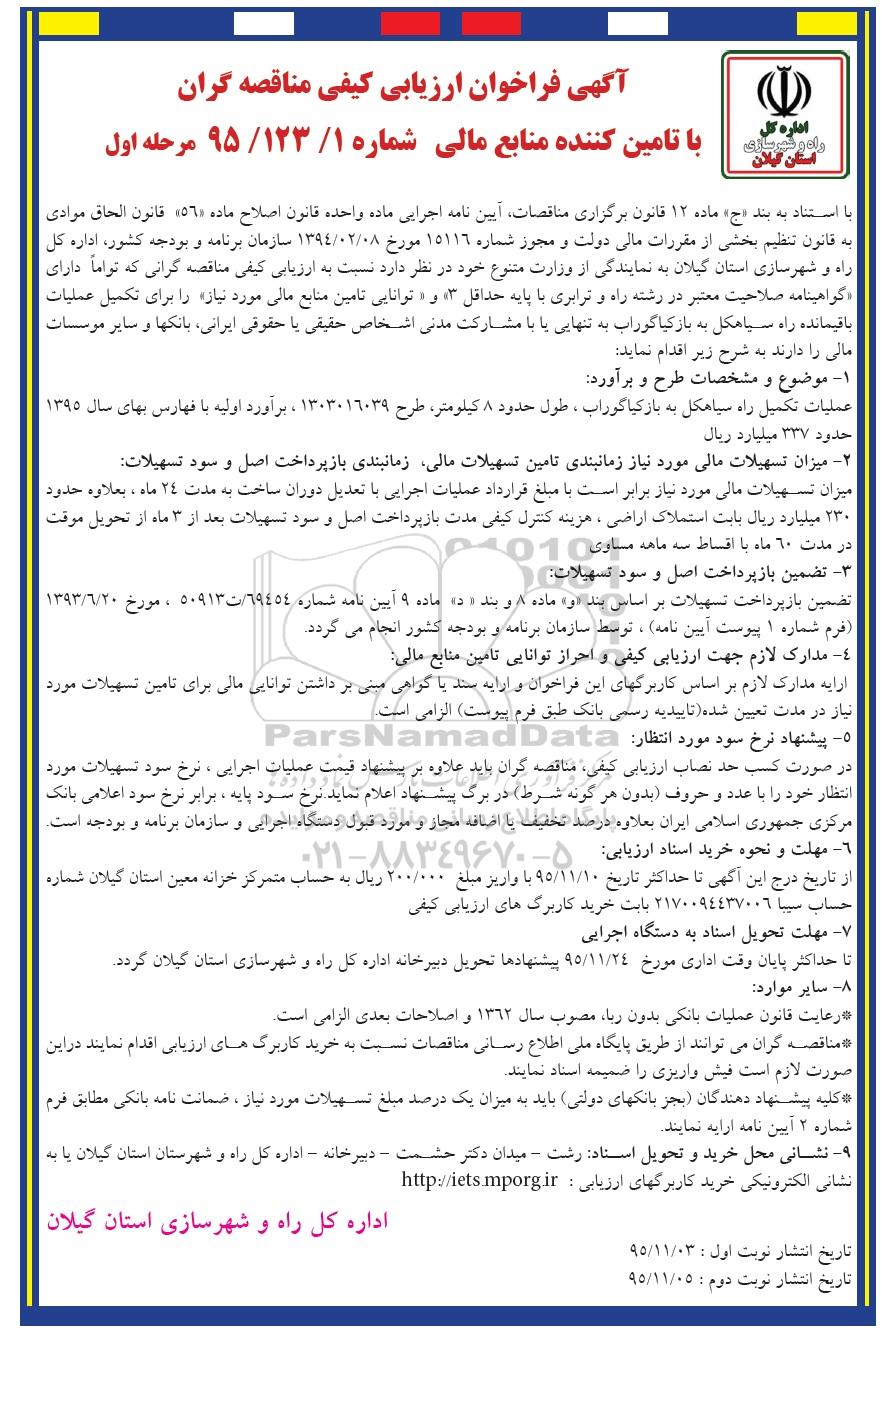 آگهی فراخوان ارزیابی کیفی مناقصه گران
با تامین کننده منابع مالی شماره ۱/ ۱۲۳/ ۹۵ مرحله اول
اداره کل
راه و شهرسازی
استان گیلان
با استناد به بند «ج» ماده ۱۲ قانون برگزاری مناقصات، آیین نامه اجرایی ماده واحده قانون اصلاح ماده «۵۶» قانون الحاق موادی
به قانون تنظیم بخشی از مقررات مالی دولت و مجوز شماره ۱۵۱۱۶ مورخ ۱۳۹۴/۰۲/۰۸ سازمان برنامه و بودجه کشور، اداره کل
راه و شهرسازی استان گیلان به نمایندگی از وزارت متنوع خود در نظر دارد نسبت به ارزیابی کیفی مناقصه گرانی که تواماً دارای
«گواهینامه صلاحیت معتبر در رشته راه و ترابری با پایه حداقل ۳» و « توانایی تامین منابع مالی مورد نیاز» را برای تکمیل عملیات
باقیمانده راه سیاهکل به بازکیاگوراب به تنهایی یا با مشارکت مدنی اشخاص حقیقی یا حقوقی ایرانی، بانکها و سایر موسسات
مالی را دارند به شرح زیر اقدام نماید:
۱- موضوع و مشخصات طرح و برآورد:
عملیات تکمیل راه سیاهکل به بازکیاگوراب ، طول حدود ۸ کیلومتر، طرح ۱۳۰۳۰۱۶۰۳۹ ، برآورد اولیه با فهارس بهای سال ۱۳۹۵
حدود ۳۳۷ میلیارد ریال
۲- میزان تسهیلات مالی مورد نیاز زمانبندی تامین تسهیلات مالی، زمانبندی بازپرداخت اصل و سود تسهیلات:
میزان تسهیلات مالی مورد نیاز برابر است با مبلغ قرارداد عملیات اجرایی با تعدیل دوران ساخت به مدت ۲۴ ماه ، بعلاوه حدود
۲۳۰ میلیارد ریال بابت استملاک اراضی ، هزینه کنترل کیفی مدت بازپرداخت اصل و سود تسهیلات بعد از ۳ ماه از تحویل موقت
در مدت ۶۰ ماه با اقساط سه ماهه مساوی
۳- تضمین بازپرداخت اصل و سود تسهیلات:
تضمین بازپرداخت تسهیلات بر اساس بند «و» ماده ۸ و بند « د» ماده ۹ آیین نامه شماره ۶۹۴۵۴/ت۵۰۹۱۳ ، مورخ ۱۳۹۳/۶/۲۰
(فرم شماره ۱ پیوست آیین نامه) ، توسط سازمان برنامه و بودجه کشور انجام می گردد.
۴- مدارک لازم جهت ارزیابی کیفی و احراز توانایی تامین منابع مالی:
ارایه مدارک لازم بر اساس کاربرگهای این فراخوان و ارایه سند یا گواهی مبنی بر داشتن توانایی مالی برای تامین تسهیلات مورد
نیاز در مدت تعیین شده(تاییدیه رسمی بانک طبق فرم پیوست) الزامی است.
ParsNamadData
۵- پیشنهاد نرخ سود مورد انتظار:
در صورت کسب حد نصاب ارزیابی کیفی، مناقصه گران باید علاوه بر پیشنهاد قیمت عملیات اجرایی ، نرخ سود تسهیلات مورد
انتظار خود را با عدد و حروف (بدون هر گونه شرط) در برگ پیشنهاد اعلام نماید.نرخ سود پایه ، برابر نرخ سود اعلامی بانک
مرکزی جمهوری اسلامی ایران بعلاوه درصد تخفیف یا اضافه مجاز و مورد قبول دستگاه اجرایی و سازمان برنامه و بودجه است.
۰۲۱-۸۸۳۴۹۶۷۰-۵
۶- مهلت و نحوه خرید اسناد ارزیابی:
از تاریخ درج این آگهی تا حداکثر تاریخ ۹۵/۱۱/۱۰ با واریز مبلغ ۲۰۰/۰۰۰ ریال به حساب متمرکز خزانه معین استان گیلان شماره
حساب سیبا ۲۱۷۰۰۹۴۴۳۷۰۰۶ بابت خرید کاربرگ های ارزیابی کیفی
۷- مهلت تحویل اسناد به دستگاه اجرایی
تا حداکثر پایان وقت اداری مورخ ۹۵/۱۱/۲۴ پیشنهادها تحویل دبیرخانه اداره کل راه و شهرسازی استان گیلان گردد.
۸- سایر موارد:
*رعایت قانون عملیات بانکی بدون ربا، مصوب سال ۱۳۶۲ و اصلاحات بعدی الزامی است.
*مناقصه گران می توانند از طریق پایگاه ملی اطلاع رسانی مناقصات نسبت به خرید کاربرگ های ارزیابی اقدام نمایند دراین
صورت لازم است فیش واریزی را ضمیمه اسناد نمایند.
*کلیه پیشنهاد دهندگان (بجز بانکهای دولتی) باید به میزان یک درصد مبلغ تسهیلات مورد نیاز ، ضمانت نامه بانکی مطابق فرم
شماره ۲ آیین نامه ارایه نمایند.
۹- نشانی محل خرید و تحویل اسناد: رشت - میدان دکتر حشمت - دبیرخانه - اداره کل راه و شهرستان استان گیلان یا به
نشانی الکترونیکی خرید کاربرگهای ارزیابی : http://iets.mporg.ir
اداره کل راه و شهرسازی استان گیلان
تاریخ انتشار نوبت اول : ۹۵/۱۱/۰۳
تاریخ انتشار نوبت دوم : ۹۵/۱۱/۰۵